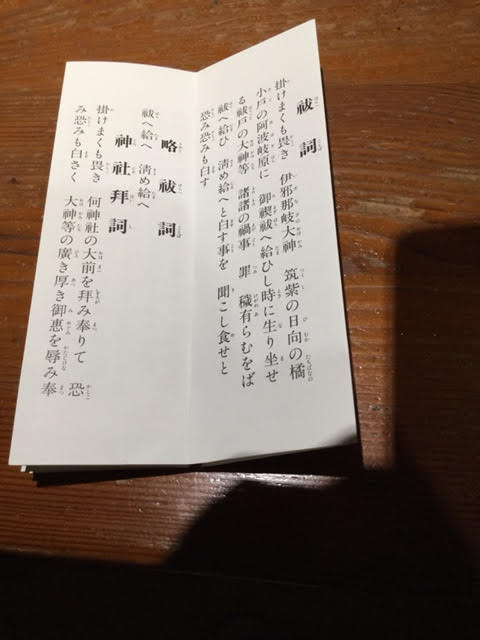 祓詞
掛けまくも畏き 伊邪那岐大神 筑紫の日向の橘
小戸の阿波岐原に 御禊祓へ給ひし時に生り坐せ
る祓戸の大神等 諸諸の禍事 罪 穢有らむをば
祓へ給ひ 清め給へと白す事を 聞こし食せと
恐み恐みも白す
略祓詞
祓へ給へ 清め給へ
神社拝詞
掛けまくも畏き 何神社の大前を拝み奉りて 恐
み恐みも白さく 大神等の廣き厚き御恵を辱み奉